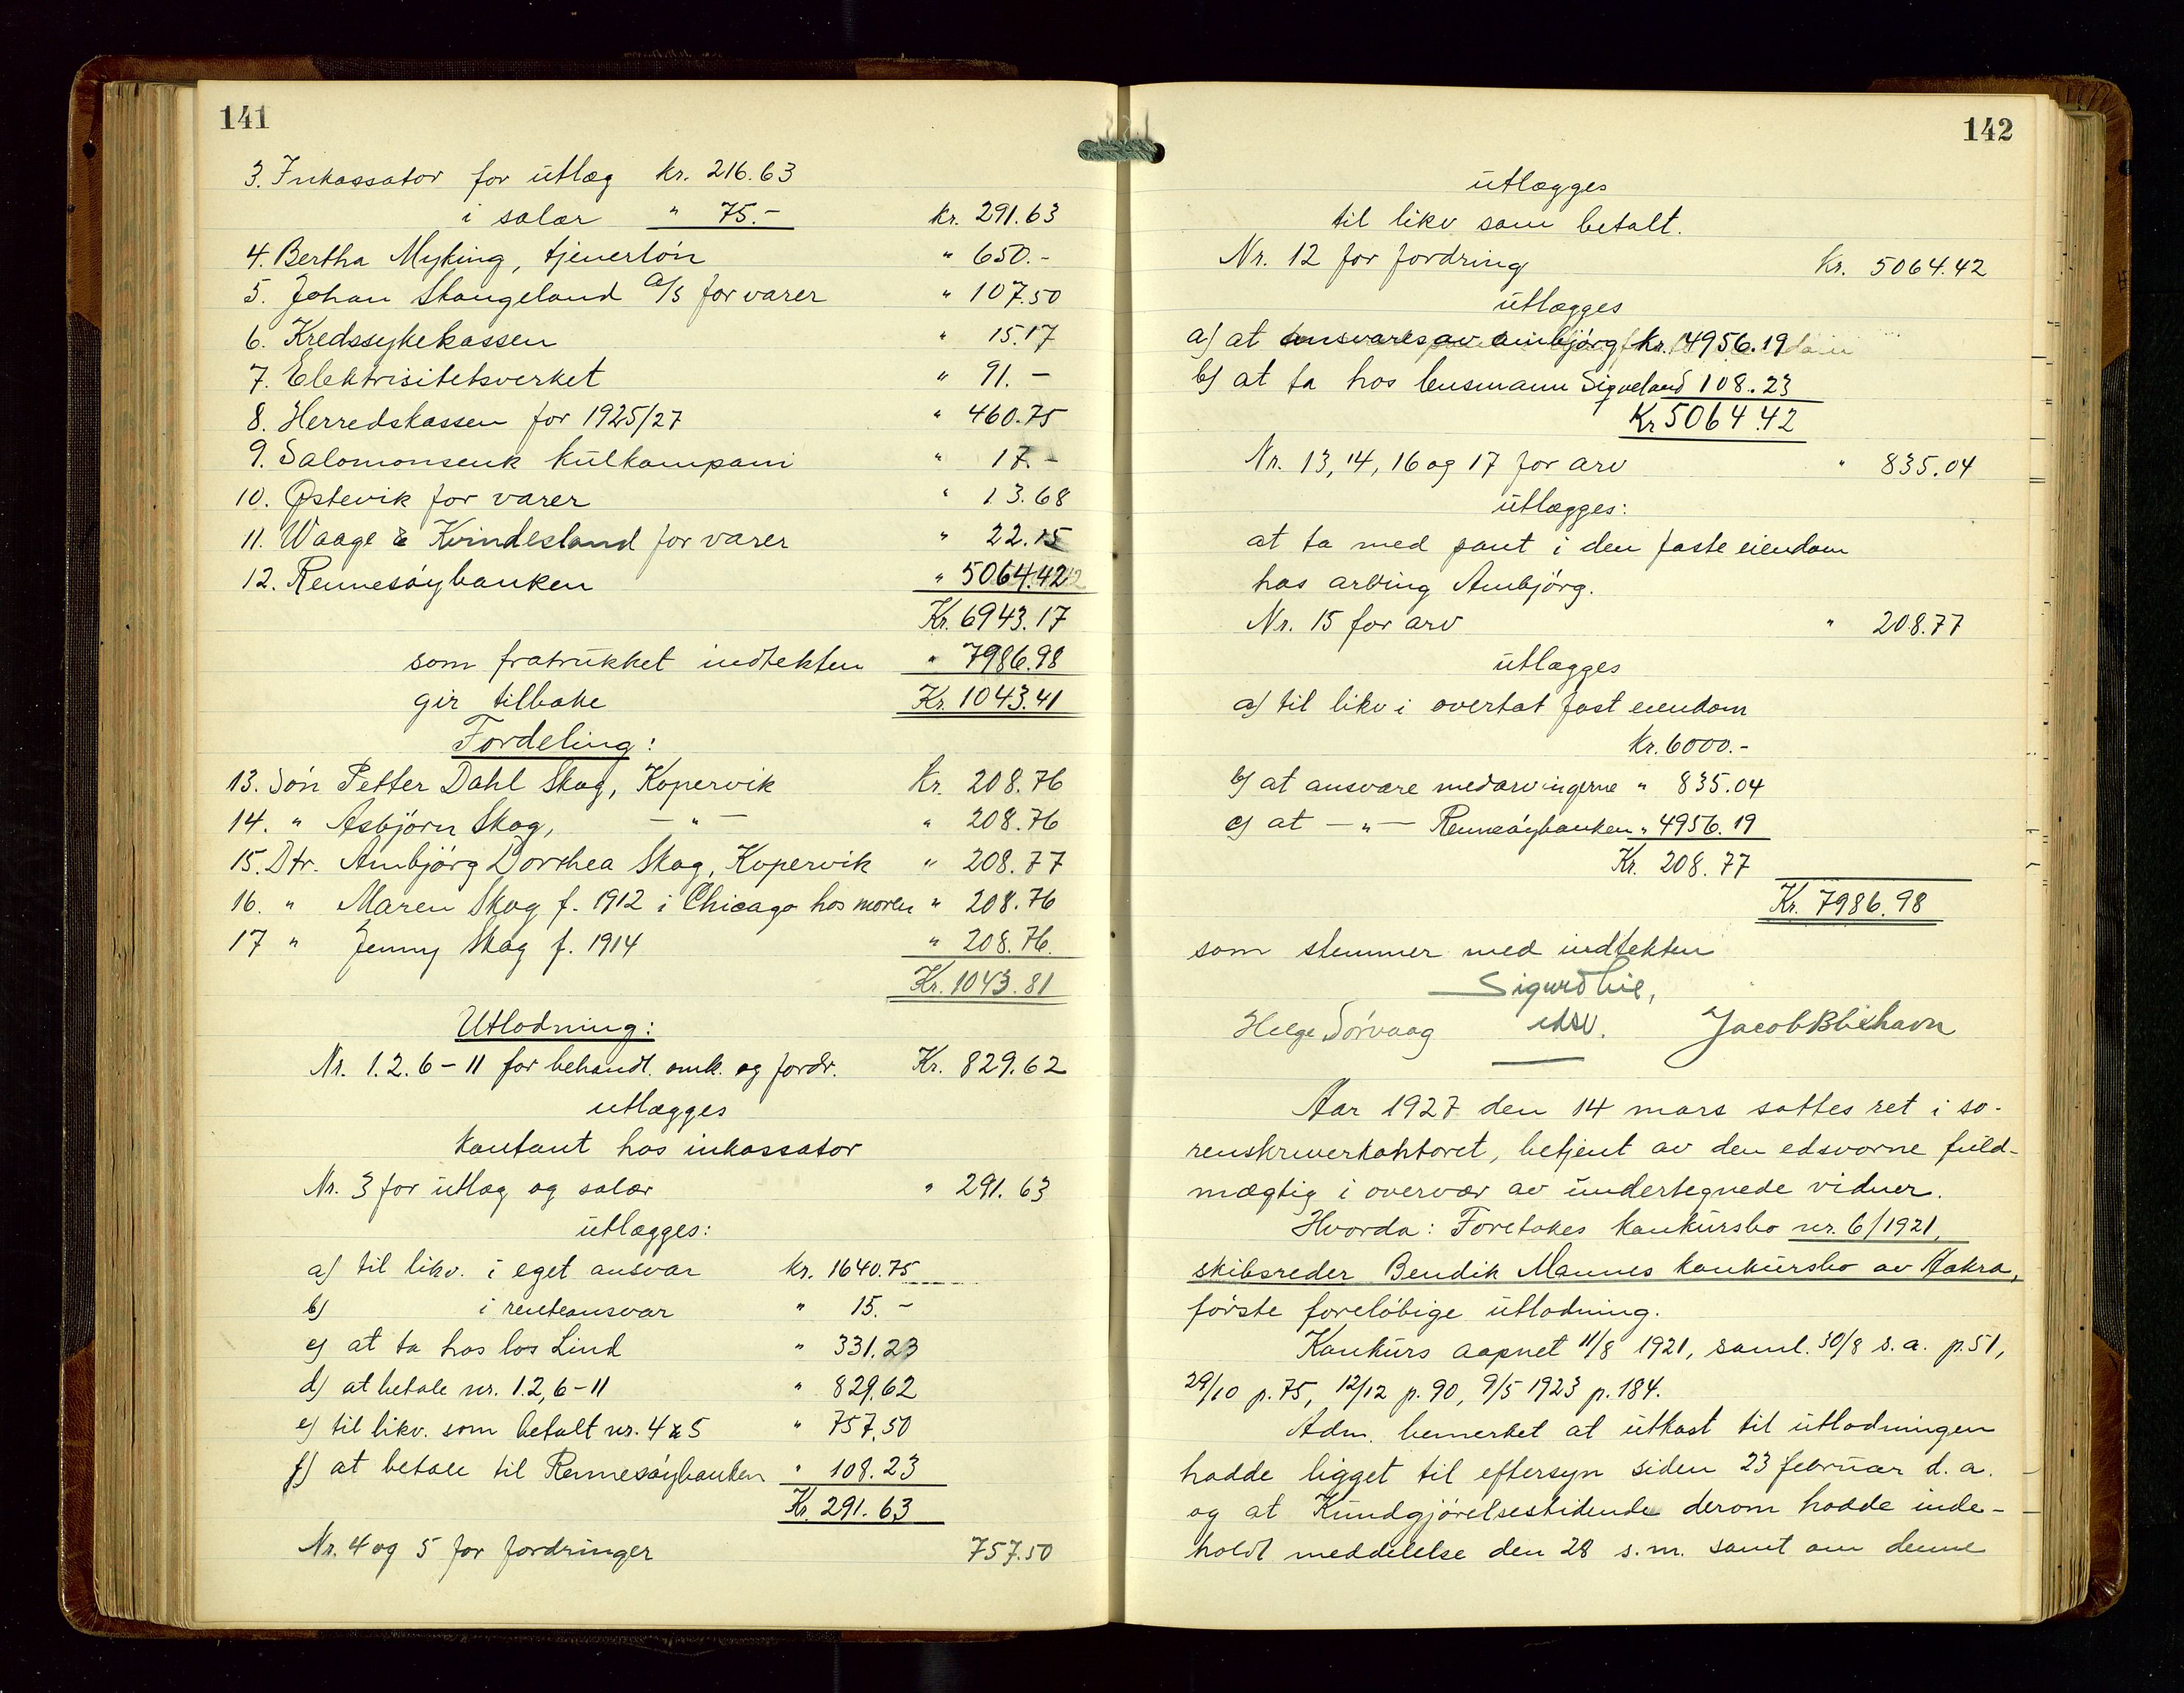 141
3. Inkassator for utlæg kr. 216.63
i salær " 75.- kr. 291.63
4. Bertha Myking, tjenerløn " 650.-
5. Johan Stangeland A/S for varer " 107.50
6. Kredssykekassen " 15.17
7. Elektrisitetsverket " 91.-
8. Herredskassen for 1925/27 " 460.75
9. Salomonsens kulkompani " 17.-
10. Østevik for varer " 13.68
11. Waage & Kvindesland for varer " 22.15
12. Rennesøybanken " 5064.42
Kr. 6943.17
som fratrukket indtekten " 7986.98
gir tilbake Kr. 1043.41
Fordeling:
13. Søn Petter Dahl Skog, Kopervik Kr. 208.76
14. " Asbjørn Skog, - " - " 208.76
15. Dtr. Ambjørg Dorthea Skog, Kopervik " 208.77
16. " Maren Skog f. 1912 i Chicago hos moren " 208.76
17 " Jenny Skog f. 1914 " 208.76.
Kr. 1043.81
Utlodning:
Nr. 1.2.6-11 for behandl. omk. og fordr. Kr. 829.62
utlægges
kontant hos inkassator
Nr. 3 for utlæg og salær " 291.63
utlægges:
a) til likv. i eget ansvar kr. 1640.75
b) i renteansvar " 15.-
c) at ta hos los Lind " 331.23
d) at betale nr. 1.2,6-11 " 829.62
e) til likv. som betalt nr. 4 & 5 " 757.50
f) at betale til Rennesøybanken " 108.23
Kr. 291.63
Nr. 4 og 5 for fordringer 757.50
142
utlægges
til likv som betalt.
Nr. 12 for fordring Kr. 5064.42
utlægges
a) at ansvares av Ambjørg kr. 4956.19
b) at ta hos lensmann Sigveland 108.23
Kr 5064.42
Nr. 13, 14, 16 og 17 for arv " 835.04
utlægges:
at ta med pant i den faste eiendom
hos arving Ambjørg.
Nr. 15 for arv " 208.77
utlægges
a) til likv i overtat fast eiendom
Kr. 6000.-
b) at ansvare medarvingerne " 835.04
c) at - " - Rennesøybanken " 4956.19
Kr. 208.77
Kr. 7986.98
som stemmer med indtekten
Sigurd Lie,
Helge Sørvaag edsv. Jacob Blikhavn
Aar 1927 den 14 mars sattes ret i so-
renskriverkontoret, betjent av den edsvorne fuld-
mægtig i overvær av undertegnede vidner.
Hvorda: Foretokes konkursbo nr. 6/1921,
skibsreder Bendik Mannes konkursbo av Aakra,
første foreløbige utlodning.
Konkurs aapnet 11/8 1921, saml. 30/8 s.a. p. 51,
29/10 p. 75, 12/12 p. 90, 9/5 1923 p. 184.
Adm. bemerket at utkast til utlodningen
hadde ligget til eftersyn siden 23 februar d.a.
og at Kundgjørelsestidende derom hadde inde-
holdt meddelelse den 28 s.m. samt om denne